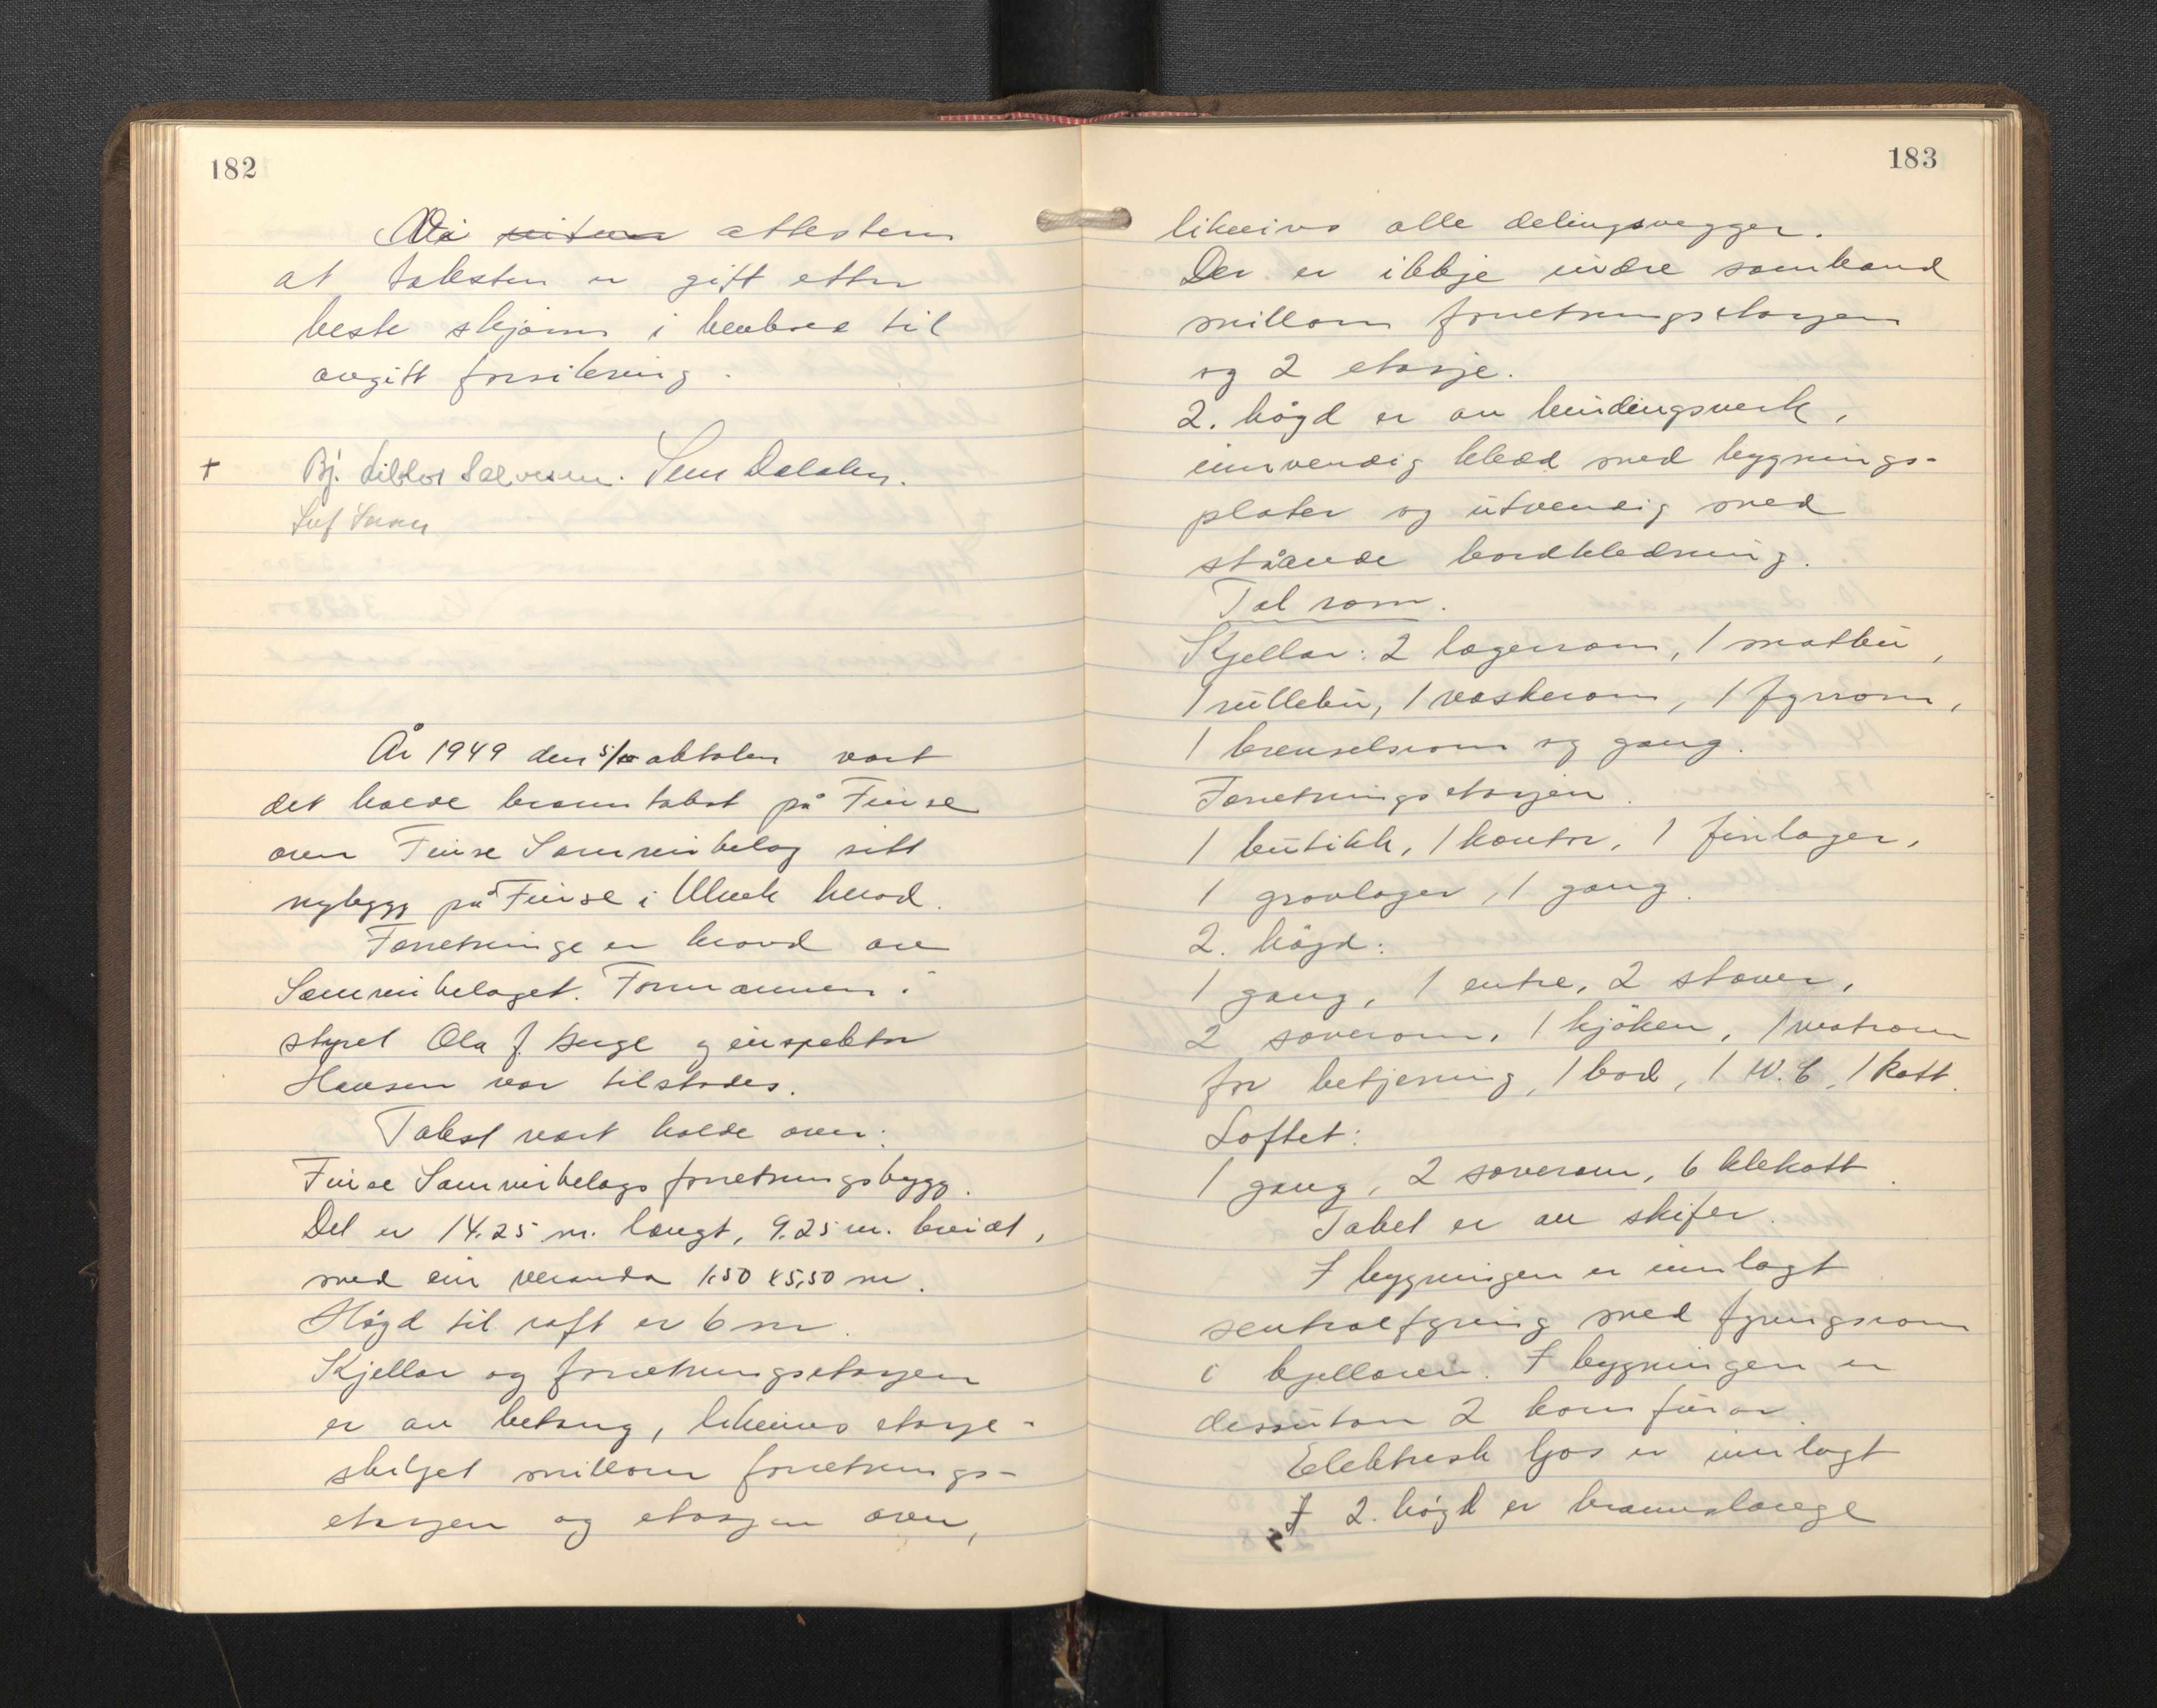 182
Vi vitner attesterer
at taksten er gitt etter
beste skjønn i henhold til
avgitt forsikring.
+ Bj. Sem Dalaker.
Leif
År 1949 den 5/10 oktober vart
det halde branntakst på Finse
over Finse Samvirkelag sitt
nybygg på Finse i Ulvik herad.
Forretninge er kravd av
Samvirkelaget. Formannen i
styret Ola J. Berge og inspektør
Hansen var tilstades.
Takst vart halde over:
Finse Samvirkelags forretningsbygg.
Det er 14.25 m. langt, 9.25 m. breidt,
med ein veranda 1.50 x 5,50 m.
Høgd til raft er 6 m.
Kjellar og forretningsetasjen
er av betong, likeins etasje-
skiljet millom forretnings-
etasjen og etasjen over,
183
likeins alle delingsvegger.
Der er ikkje indre samband
millom forretningsetasjen
og 2 etasje.
2. høgd er av bindingsverk,
innvendig kledd med bygnings-
plater og utvendig med
ståande bordkledning.
Tal rom.
Kjellar: 2 lagerrom, 1 matbu,
1 rullebu, 1 vaskerom, 1 fyrrom,
1 brenselsrom og gang.
Forretningsetasjen.
1 butikk, 1 kontor, 1 finlager,
1 grovlager, 1 gang.
2. høgd:
1 gang, 1 entre, 2 stover,
2 soverom, 1 kjøken, 1 matrom
for betjening, 1 bod, 1 W.C, 1 kott.
Loftet:
1 gang, 2 soverom, 6 klekott.
Taket er av skifer.
I bygningen er innlagt
sentralfyring med fyringsrom
i kjellaren. I bygningen er
dessutan 2 komfurar.
Elektrisk ljos er innlagt
I 2. høgd er brannslange